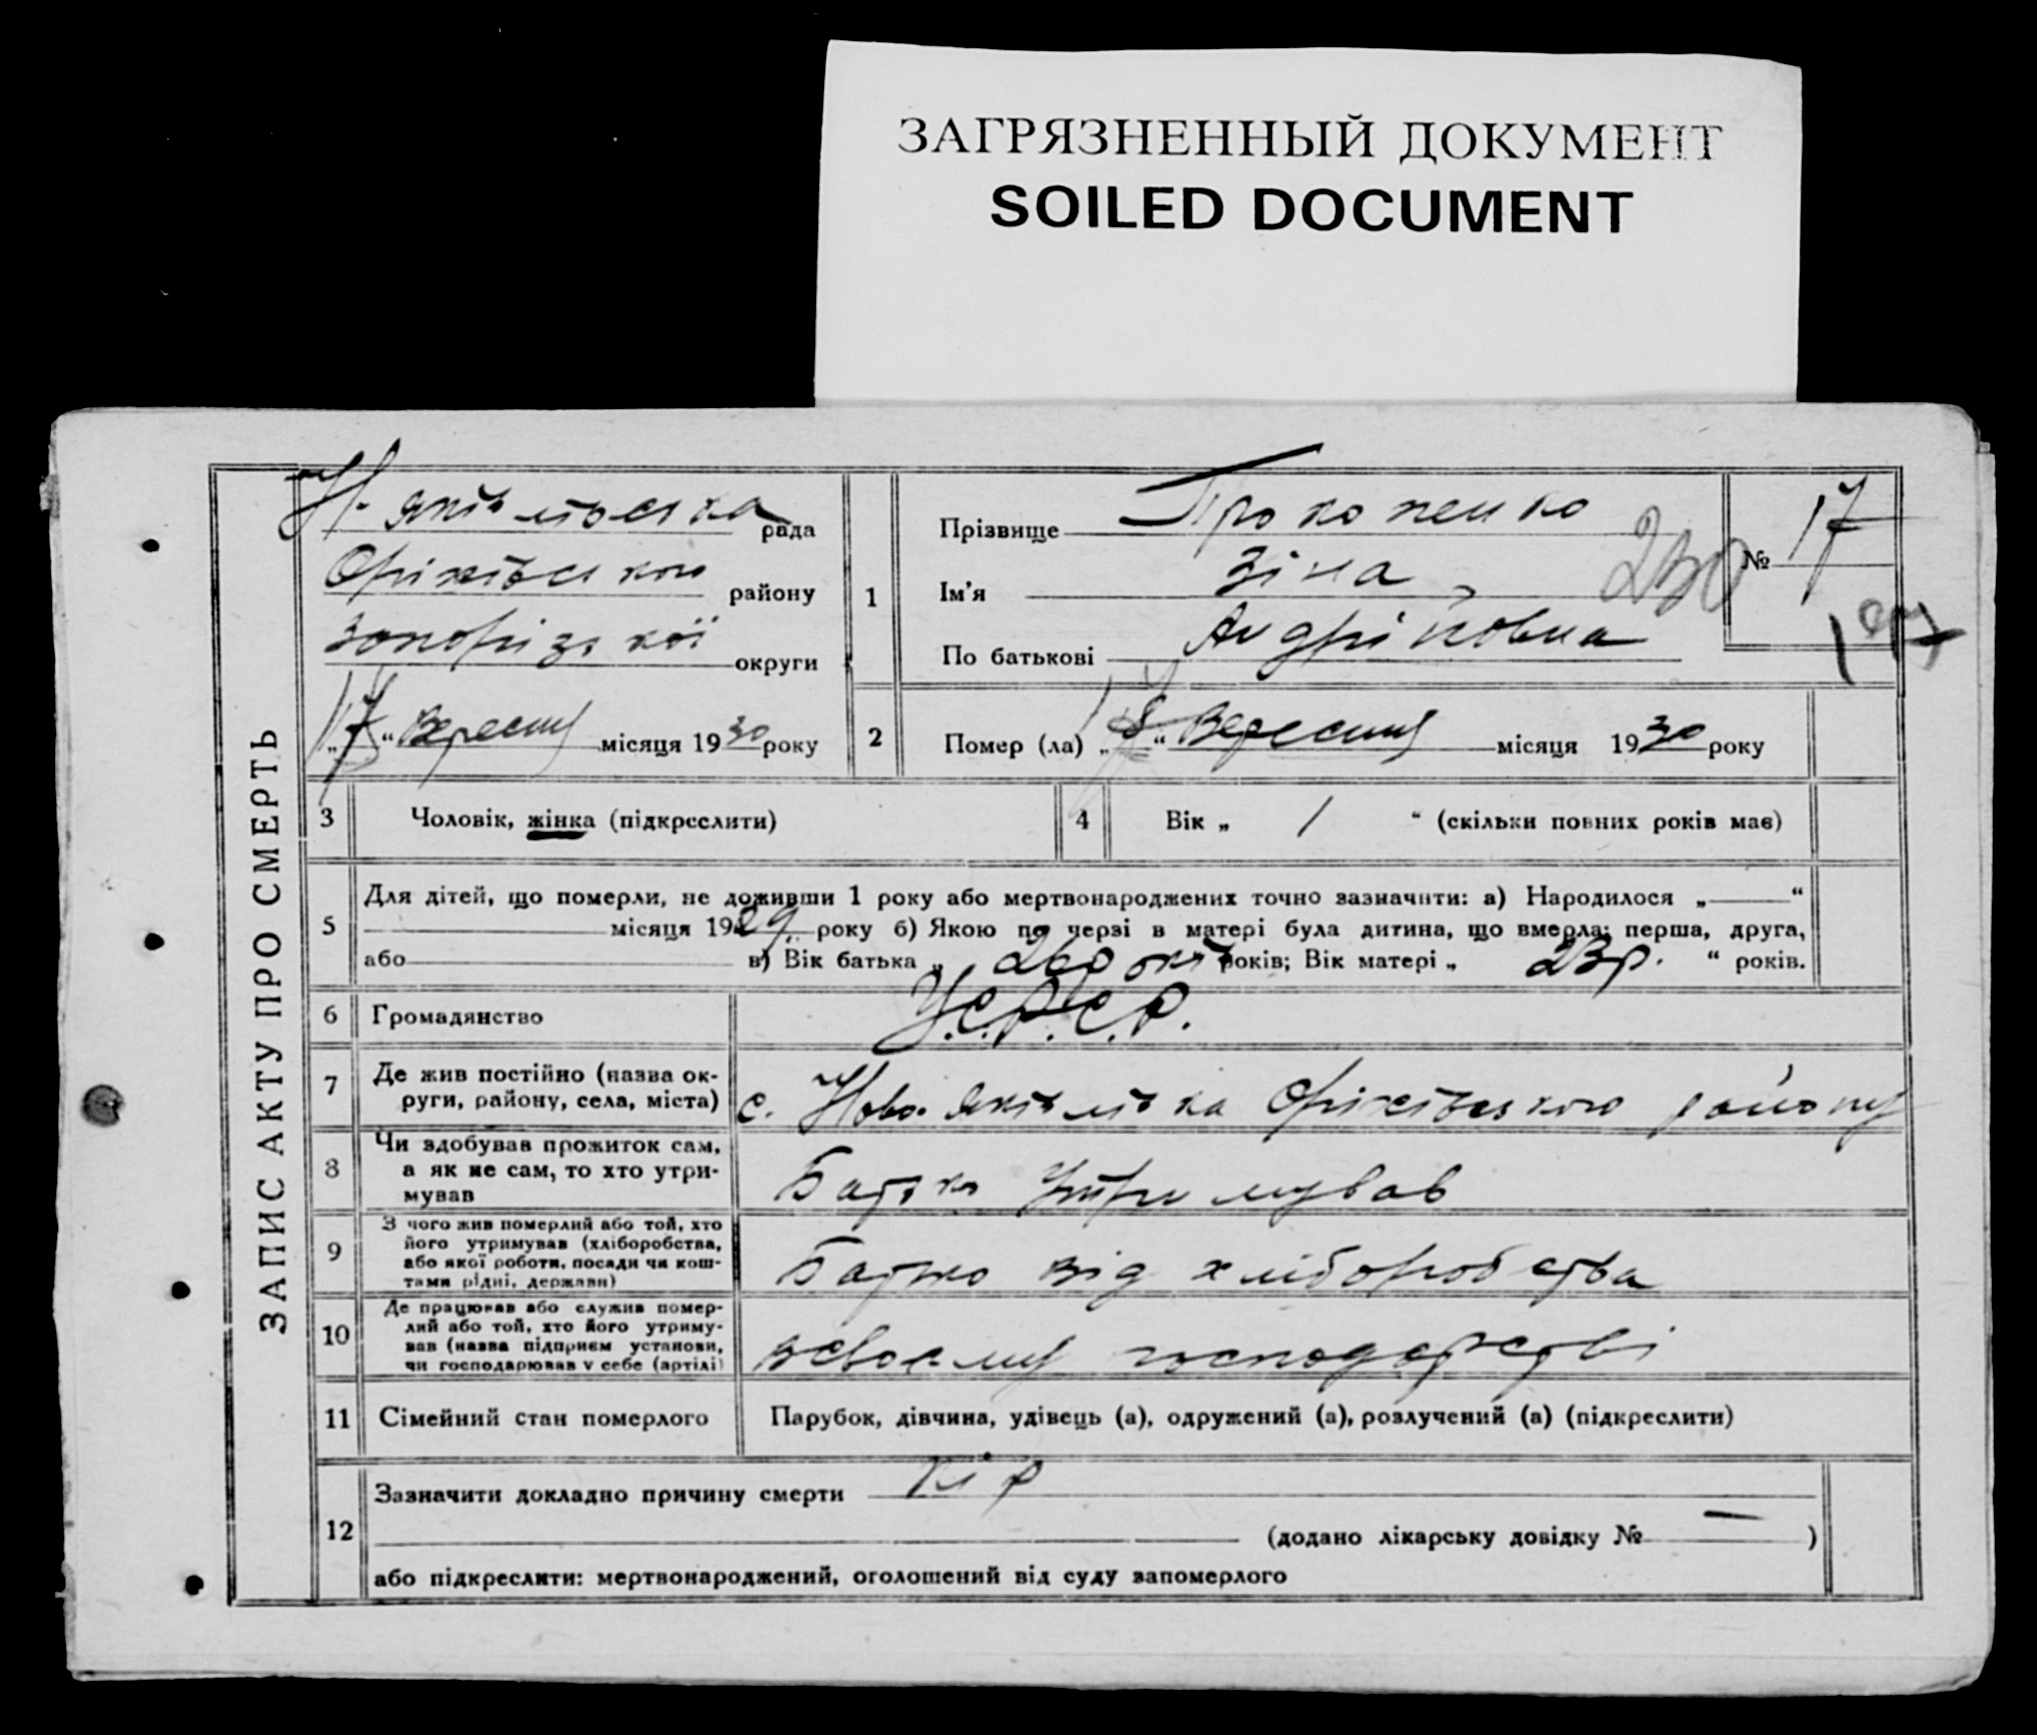 ЗАГРЯЗНЕННЫЙ ДОКУМЕНТ
SOILED DOCUMENT
ЗАПИС АКТУ ПРО СМЕРТЬ
Н. Яківлівська рада
Оріхівського району
Запорізької округи
„17“ Вересня місяця 1930 року
1
Прізвище Прокопенко
Ім'я Зіна
По батькові Андріївна
230
№ 17
197
2 Помер (ла) Вересня місяця 1930 року
3 Чоловік, жінка (підкреслити)
4 Вік „ 1 “ (скільки повних років має)
5 Для дітей, що померли, не доживши 1 року або мертвонароджених точно зазначити: а) Народилося „ “
місяця 1929 року б) Якою по черзі в матері була дитина, що вмерла: перша, друга,
або в) Вік батька „ 26 років; Вік матері „ 23 р. “ років.
6 Громадянство У.С.Р.С.Р.
7 Де жив постійно (назва округи, району, села, міста) с. Ново Яківлівка Оріхівського району
8 Чи здобував прожиток сам, а як не сам, то хто утримував Батько утримував
9 З чого жив померлий або той, хто його утримував (хліборобства, або якої роботи, посади чи коштами рідні, держави) Батько від хліборобства
10 Де працював або служив померлий або той, хто його утримував (назва підприєм установи, чи господарював у себе (артілі) всвоєму господарстві
11 Сімейний стан померлого Парубок, дівчина, удівець (а), одружений (а), розлучений (а) (підкреслити)
12 Зазначити докладно причину смерти Кір
(додано лікарську довідку № — )
або підкреслити: мертвонароджений, оголошений від суду запомерлого